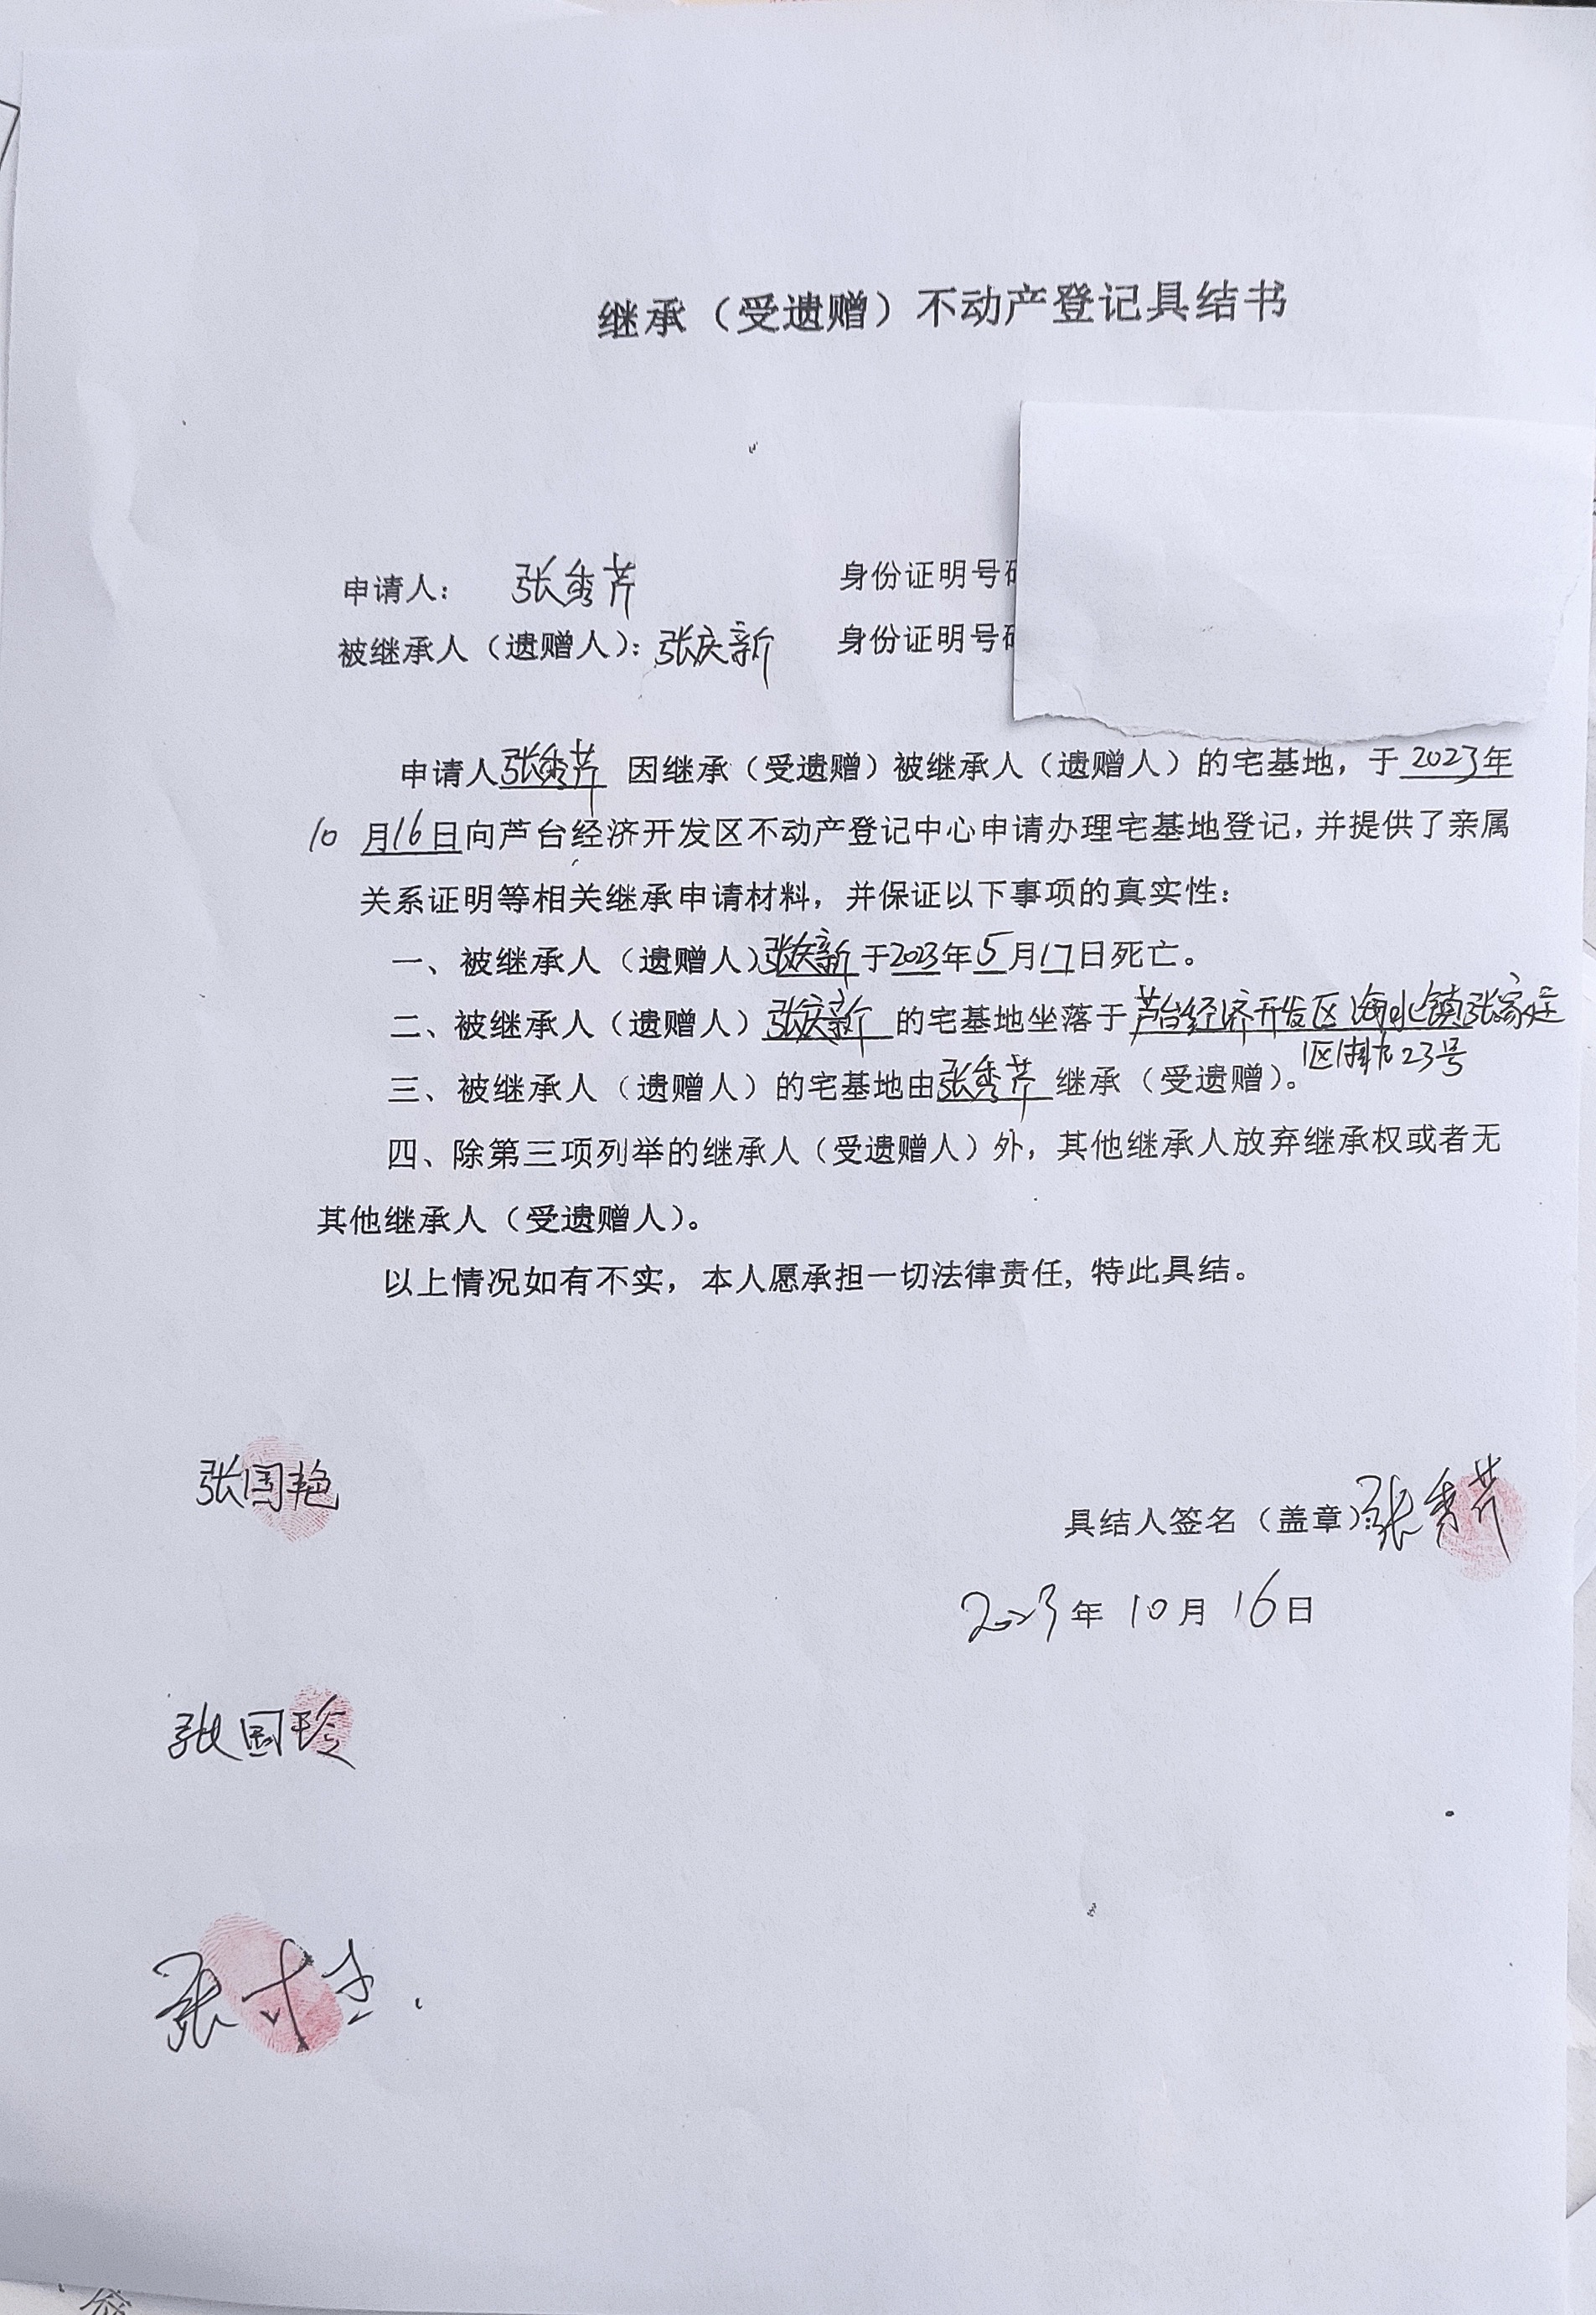 继承（受遗赠）不动产登记具结书
申请人： 张秀芹 身份证明号
被继承人（遗赠人）：张庆新 身份证明号
申请人张秀芹 因继承（受遗赠）被继承人（遗赠人）的宅基地，于 2023年
10 月16日向芦台经济开发区不动产登记中心申请办理宅基地登记，并提供了亲属
关系证明等相关继承申请材料，并保证以下事项的真实性：
一、被继承人（遗赠人）张庆新于2023年5月17日死亡。
二、被继承人（遗赠人）张庆新 的宅基地坐落于芦台经济开发区海北镇张家庄
区 23号
三、被继承人（遗赠人）的宅基地由张秀芹 继承（受遗赠）。
四、除第三项列举的继承人（受遗赠人）外，其他继承人放弃继承权或者无
其他继承人（受遗赠人）。
以上情况如有不实，本人愿承担一切法律责任，特此具结。
张国艳
具结人签名（盖章）：张秀芹
2023年 10月 16日
张国珍
张